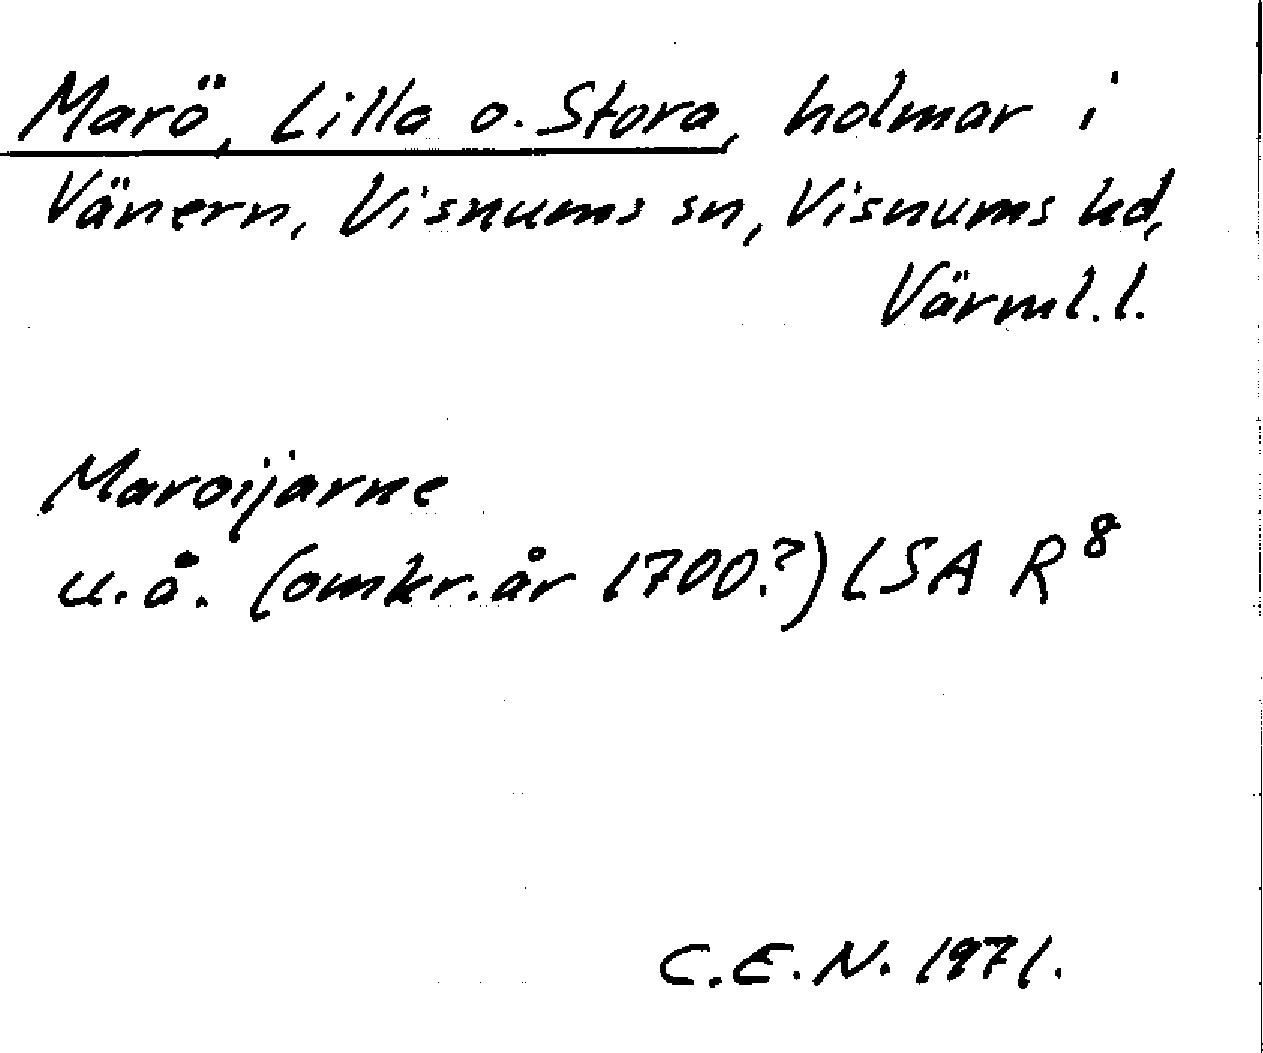 Marö, Lilla o. Stora, holmar i
Vänern, Visnums sn, Visnums hd,
Värml. l.
Maroijarne
u.å. (omkr. år 1700?) LSA R⁸
C.E.N. 1971.